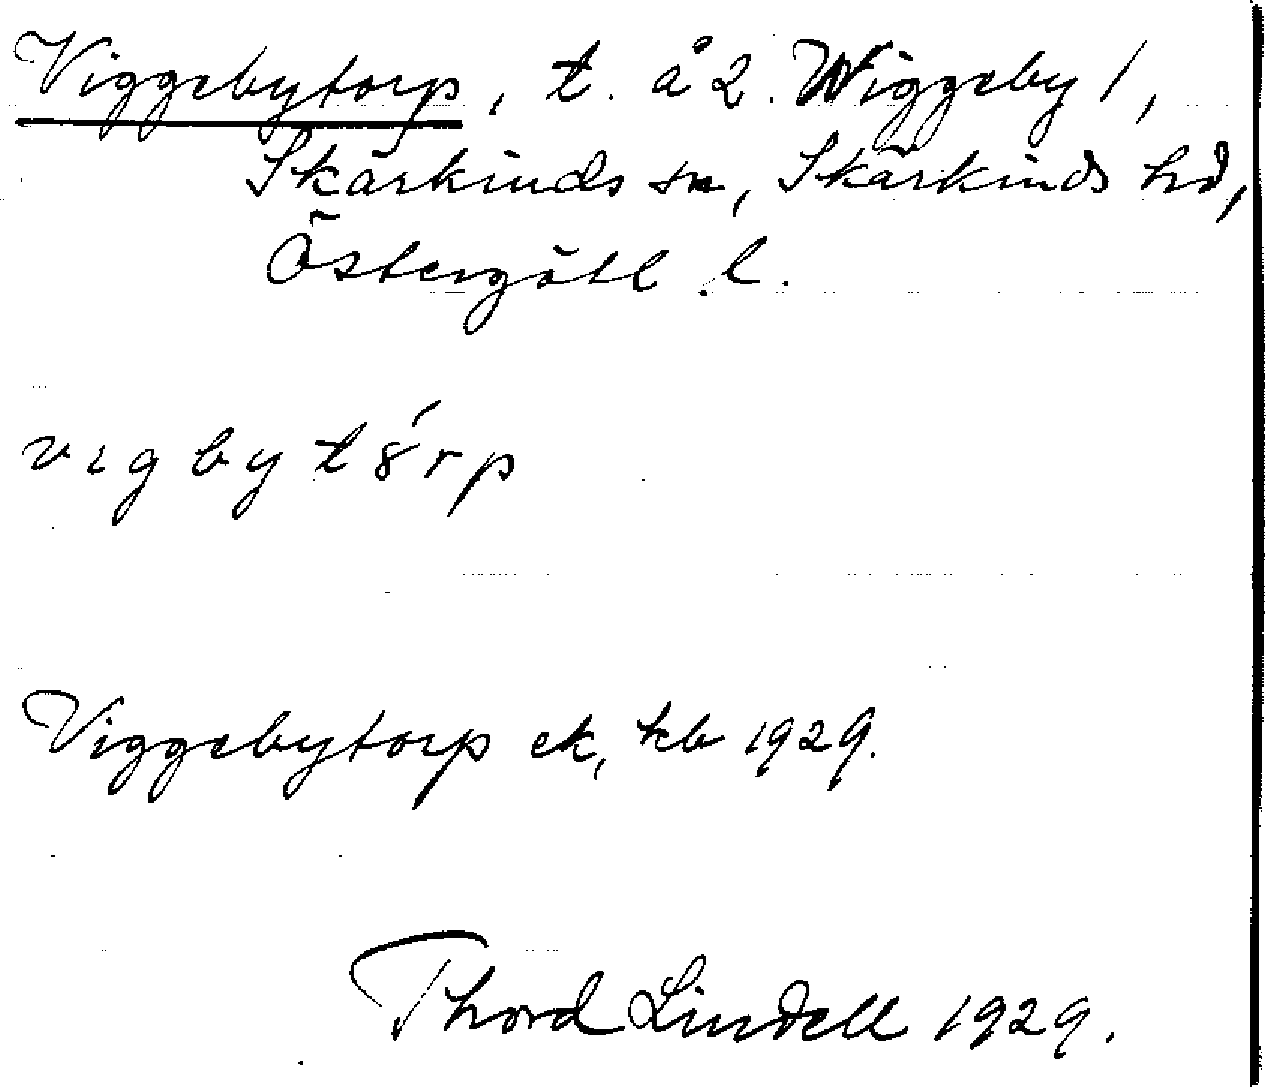 Viggebytorp, t. å 2. Wiggeby 1,
Skärkinds sn, Skärkinds hd,
Östergötl. l.
vıgbytȣ́rp
Viggebytorp ek, kb 1929.
Thord Lindell 1929.